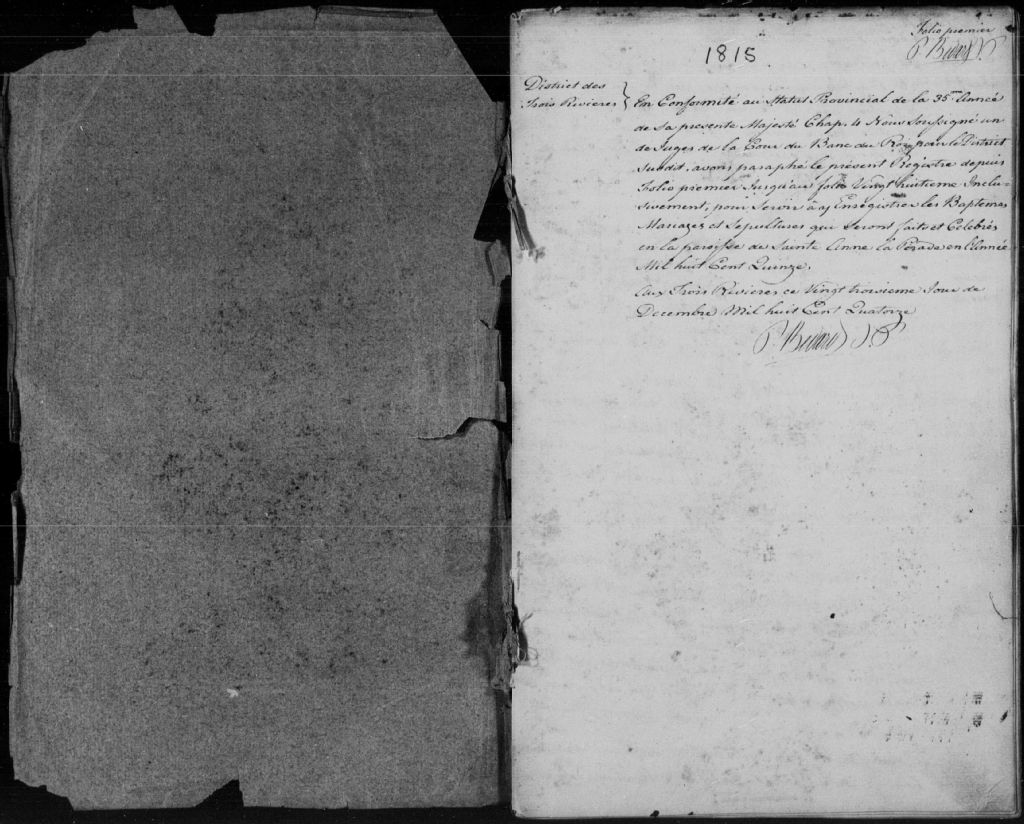 Folio premier
P. Bedard J.
1815
District des
Trois Rivieres }
En Conformité au Statut Provincial de la 35me Année
de Sa presente Majesté Chap. 4 Nous Soussigné un
de Juges de la Cour du Banc du Roi pour le District
susdit, avons paraphé le présent Registre depuis
Folio premier Jusqu'au folio Vingt huitieme Inclu-
sivement, pour Servir à y Enregistrer les Baptemes
Mariages et Sepultures qui Seront faits et Célébrés
en la paroisse de Sainte Anne la Pérade en l'Année
Mil huit Cent Quinze.
Aux Trois Rivieres ce Vingt troisieme Jour de
Decembre Mil huit Cent Quatorze
P. Bedard J.